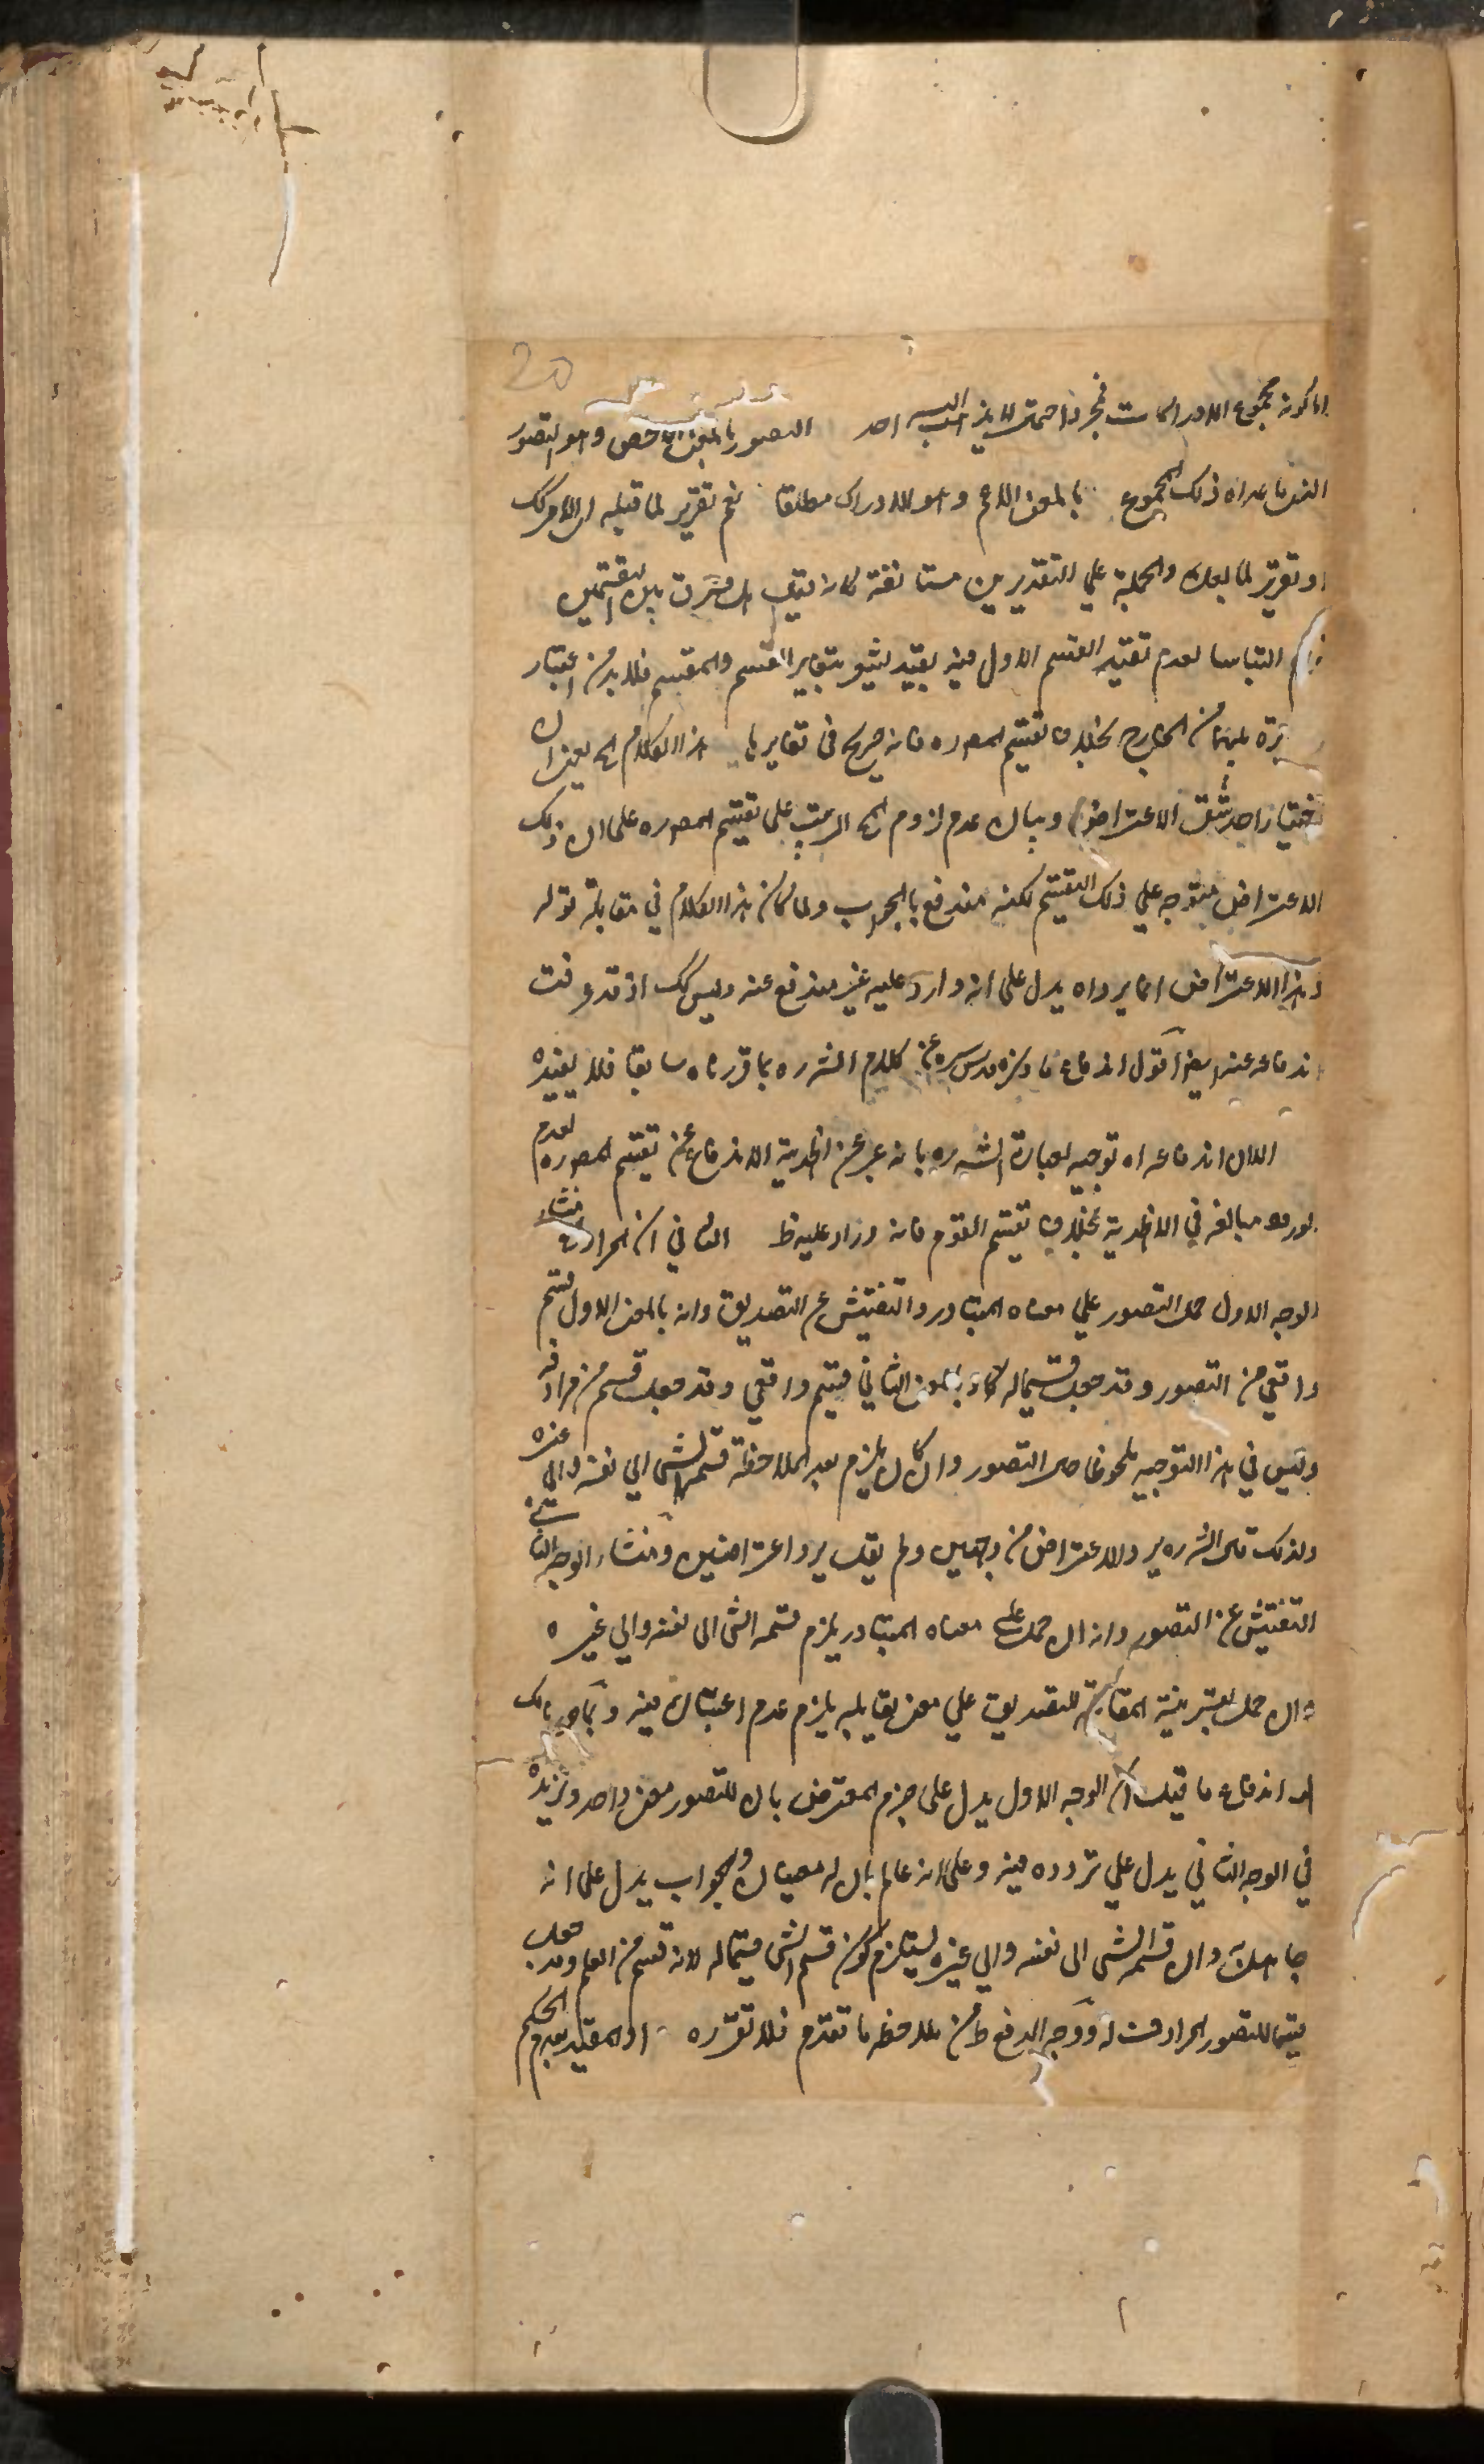 20
اما كونه مجموع الادراكات فمجرد احتمال لم يذهب اليه احد التصور بالمعنى الاخص وهو التصور
الذي ما عداه ذلك المجموع بالمعنى الاعم وهو الادراك مطلقا نعم تقرير لما قبله اى الامر كك
او تقرير لما بعده والجملة على التقديرين مستانفة كانه قيل هل فرق بين التقسيمين
التباسا لعدم تقييد القسم الاول فيه بقيد يشعر بتغاير القسم والمقسم فلابد من اعتبار
من الخارج بخلاف تقسيم المص ره فانه صريح في تغايرها هذا الكلام الخ يعنى ان
اختيار احد شقى الاعتراض وبيان عدم لزوم المترتب على تقسيم المص ره على ان ذلك
الاعتراض متوجه على ذلك التقسيم لكنه مندفع بالجواب ولما كان هذا الكلام في مقابلة قوله
وهذا الاعتراض انما يرد اه يدل على انه وارد عليه غير مندفع عنه وليس كك اذ قد عرفت
اندفاعه عنه ايضا اقول اندفاع ما ذكره قدس سره عن كلام الش ره بما قررناه سابقا فلا يفيده
الا ان اندفاعه اه توجيه لعبارة الش ره بانه عبر عن اظهرية الاندفاع عن تقسيم المص ره لعدم
لوروده مبالغة في الاظهرية بخلاف تقسيم القوم فانه وارد عليه ظ الثاني ان المراد منشاء
الوجه الاول حمل التصور على معناه المتبادر والتفتيش عن التصديق وانه بالمعنى الاول قسم
واقعي من التصور وقد جعل قسيما له كما انه بالمعنى الثاني قسيم واقعي وقد جعل قسم من مرادفه
وليس في هذا التوجيه ملحوظا حال التصور وان كان يلزم بعد الملاحظة قسمة الشئ الى نفسه والى غيره
ولذلك قال الش ره يرد الاعتراض من وجهين ولم يقل يرد اعتراضين ومنشاء الوجه الثاني
التفتيش عن التصور وانه ان حمل على معناه المتبادر يلزم قسمة الشئ الى نفسه والى غيره
وان حمل بقرينة المقابلة للتصديق على معنى يقابله يلزم عدم اعتباره فيه وبما حررنا لك
اندفاع ما قيل ان الوجه الاول يدل على جزم المعترض بان للتصور معنى واحد وترديده
في الوجه الثاني يدل على تردده فيه وعلى انه عالم بان له معنيان والجواب يدل على انه
جاهل به وان قسمة الشئ الى نفسه والى غيره يستلزم كون قسم الشئ قسيما له لانه قسم من العلم وقد جعل
قسيما للتصور المرادف له ووجه الدفع ظ من ملاحظة ما تقدم فلا نقرره او المقيد بعدم الحكم